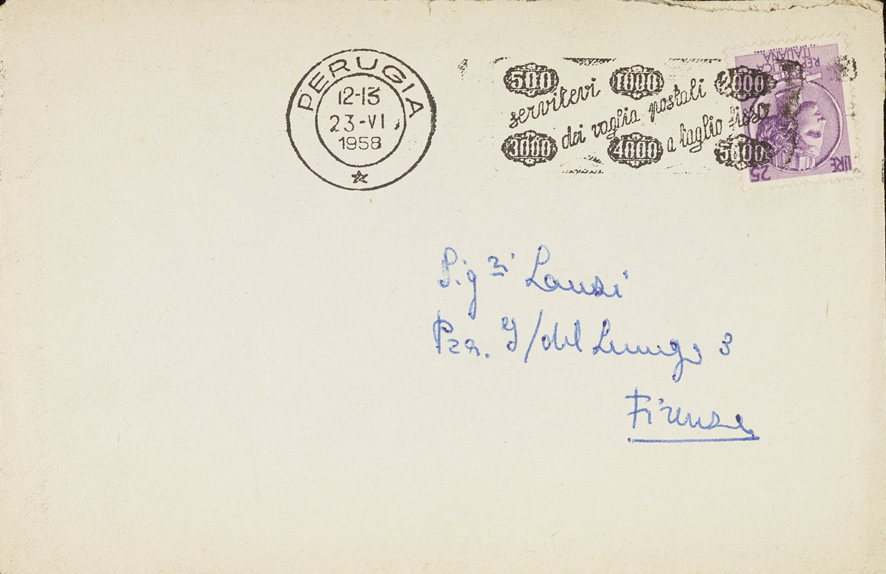 PERUGIA
12-13
23-VI
1958
500 1000 2000
servitevi dei vaglia postali a taglio fisso
3000 4000 5000
REPUBBLICA
ITALIANA
LIRE 25
Sig.ri Lansi
Pza. I/del Lungo 3
Firenze